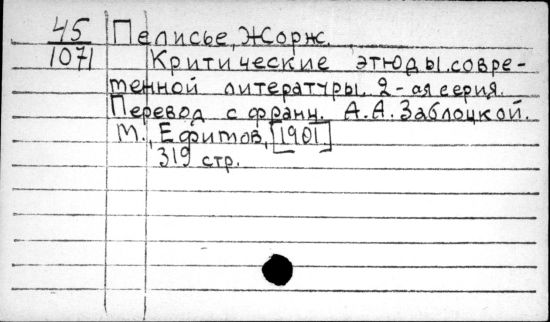 45 Пелисье, Жорж.
1071 Критические этюды совре-
менной литературы. 2-ая серия.
Перевод с франц. А.А. Заблоцкой.
М., Ефимов, [1901]
319 стр.